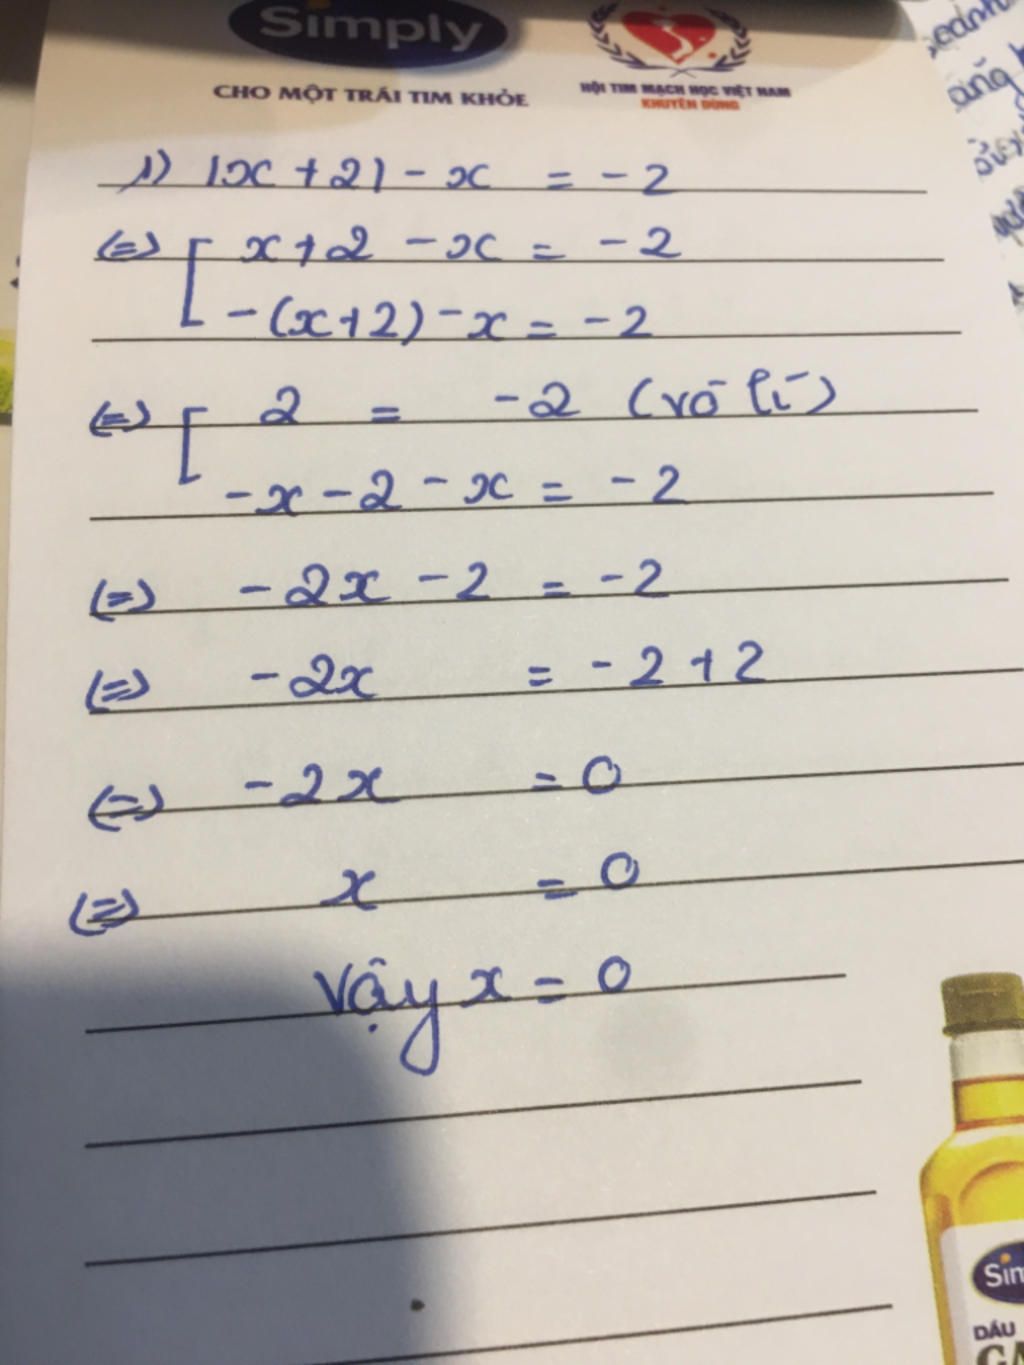 Simply
CHO MỘT TRÁI TIM KHỎE
HỘI TIM MẠCH HỌC VIỆT NAM
KHUYÊN DÙNG
1) |x + 2| - x = - 2
(=) [ x + 2 - x = - 2
- (x + 2) - x = - 2
(=) [ 2 = - 2 (vô lí)
- x - 2 - x = - 2
(=) - 2x - 2 = - 2
(=) - 2x = - 2 + 2
(=) - 2x = 0
(=) x = 0
Vậy x = 0
Sim
DẦU